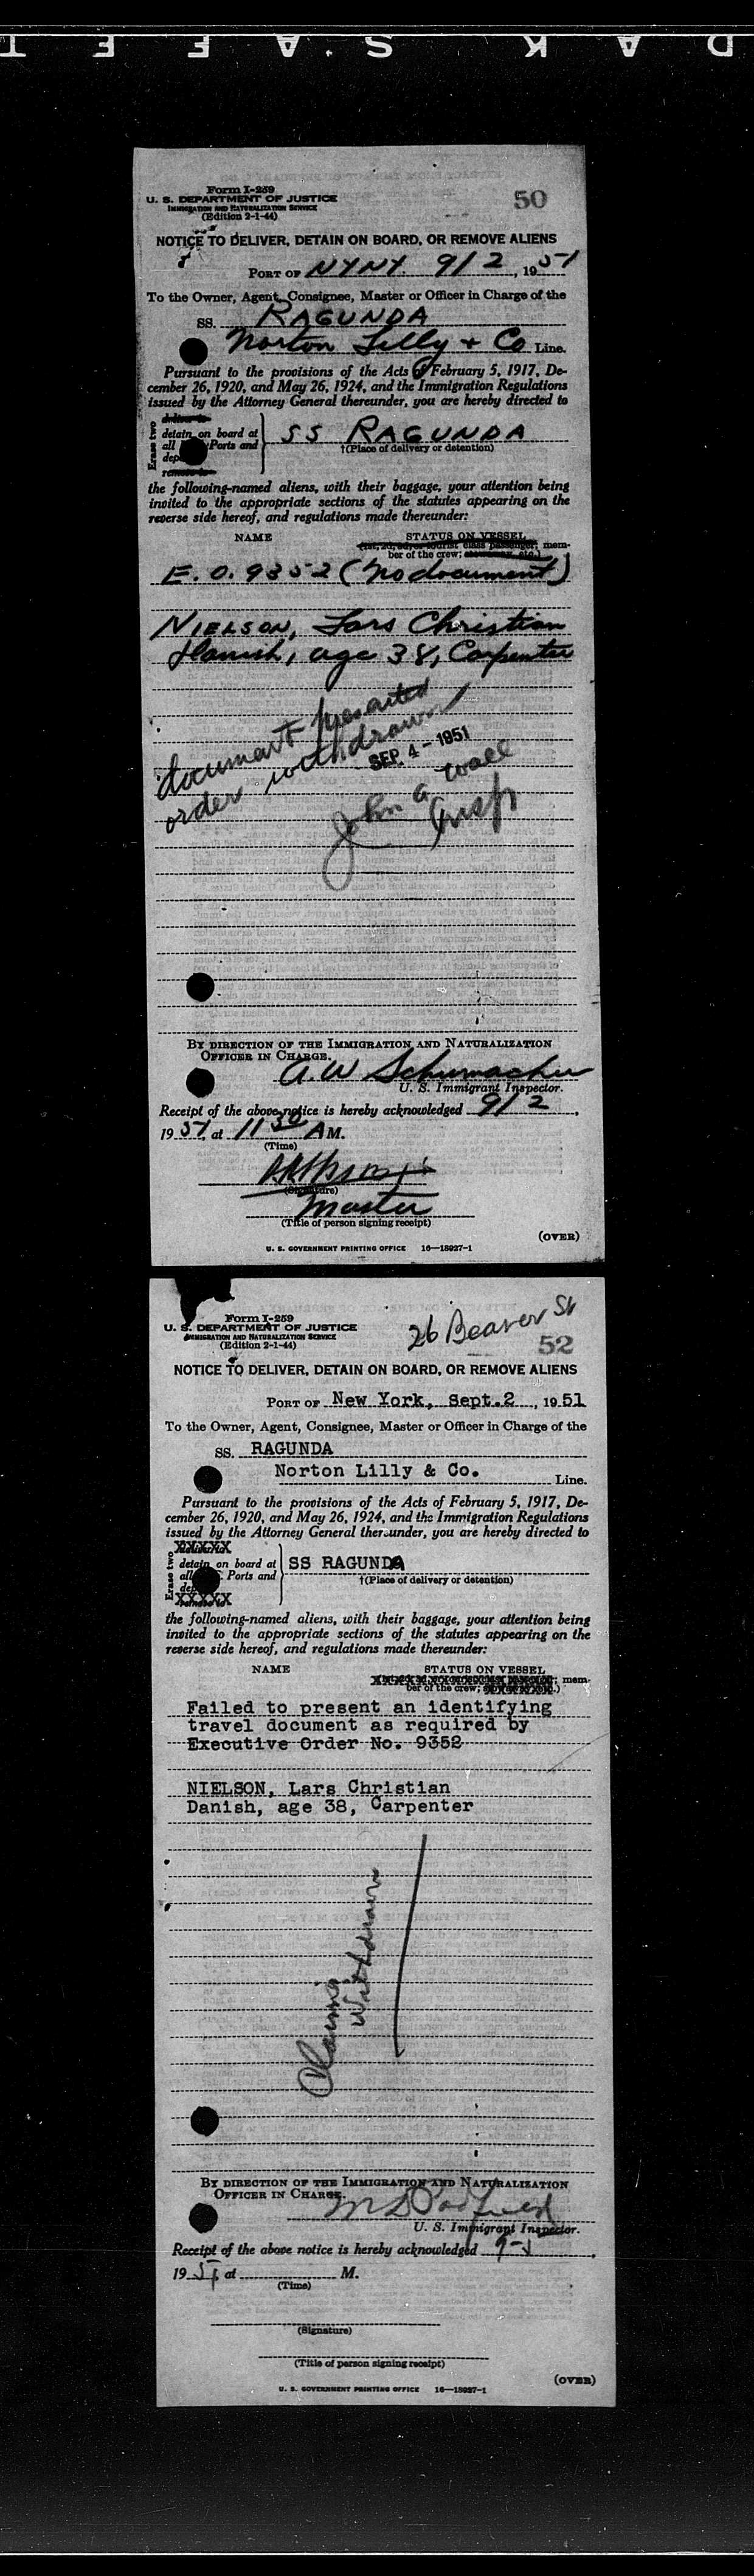 KODAK SAFETY
Form I-259
50
U. S. DEPARTMENT OF JUSTICE
IMMIGRATION AND NATURALIZATION SERVICE
(Edition 2-1-44)
NOTICE TO DELIVER, DETAIN ON BOARD, OR REMOVE ALIENS
PORT OF NYNY. 9/2, 1951
To the Owner, Agent, Consignee, Master or Officer in Charge of the
SS. RAGUNDA
Norton Lilly & Co Line.
Pursuant to the provisions of the Acts of February 5, 1917, De-
cember 26, 1920, and May 26, 1924, and the Immigration Regulations
issued by the Attorney General thereunder, you are hereby directed to
Erase two
detain on board at
all Ports and
SS RAGUNDA
†(Place of delivery or detention)
the following-named aliens, with their baggage, your attention being
invited to the appropriate sections of the statutes appearing on the
reverse side hereof, and regulations made thereunder:
NAME STATUS ON VESSEL
(1st, 2d, 3d, or tourist class passenger; mem-
ber of the crew;
E. O. 9352 (No document)
NIELSON, Lars Christian
Danish, age 38, Carpenter
document presented
order withdrawn
SEP. 4 - 1951
John A Wall
Insp
BY DIRECTION OF THE IMMIGRATION AND NATURALIZATION
OFFICER IN CHARGE.
A. W Schumacher
U. S. Immigrant Inspector.
Receipt of the above notice is hereby acknowledged 9/2,
1951, at 11 30 A M.
(Time)
(Signature)
Master
(Title of person signing receipt)
(OVER)
U. S. GOVERNMENT PRINTING OFFICE 16—18927-1
26 Beaver St
Form I-259
52
U. S. DEPARTMENT OF JUSTICE
IMMIGRATION AND NATURALIZATION SERVICE
(Edition 2-1-44)
NOTICE TO DELIVER, DETAIN ON BOARD, OR REMOVE ALIENS
PORT OF New York, Sept.2, 1951
To the Owner, Agent, Consignee, Master or Officer in Charge of the
SS. RAGUNDA
Norton Lilly & Co. Line.
Pursuant to the provisions of the Acts of February 5, 1917, De-
cember 26, 1920, and May 26, 1924, and the Immigration Regulations
issued by the Attorney General thereunder, you are hereby directed to
Erase two
XXXXX
detain on board at
all Ports and
XXXXX
SS RAGUNDA
†(Place of delivery or detention)
the following-named aliens, with their baggage, your attention being
invited to the appropriate sections of the statutes appearing on the
reverse side hereof, and regulations made thereunder:
NAME STATUS ON VESSEL
mem-
ber of the crew;
Failed to present an identifying
travel document as required by
Executive Order No. 9352
NIELSON, Lars Christian
Danish, age 38, Carpenter
Withdrawn
BY DIRECTION OF THE IMMIGRATION AND NATURALIZATION
OFFICER IN CHARGE.
U. S. Immigrant Inspector.
Receipt of the above notice is hereby acknowledged
1951, at M.
(Time)
(Signature)
(Title of person signing receipt)
(OVER)
U. S. GOVERNMENT PRINTING OFFICE 16—18927-1